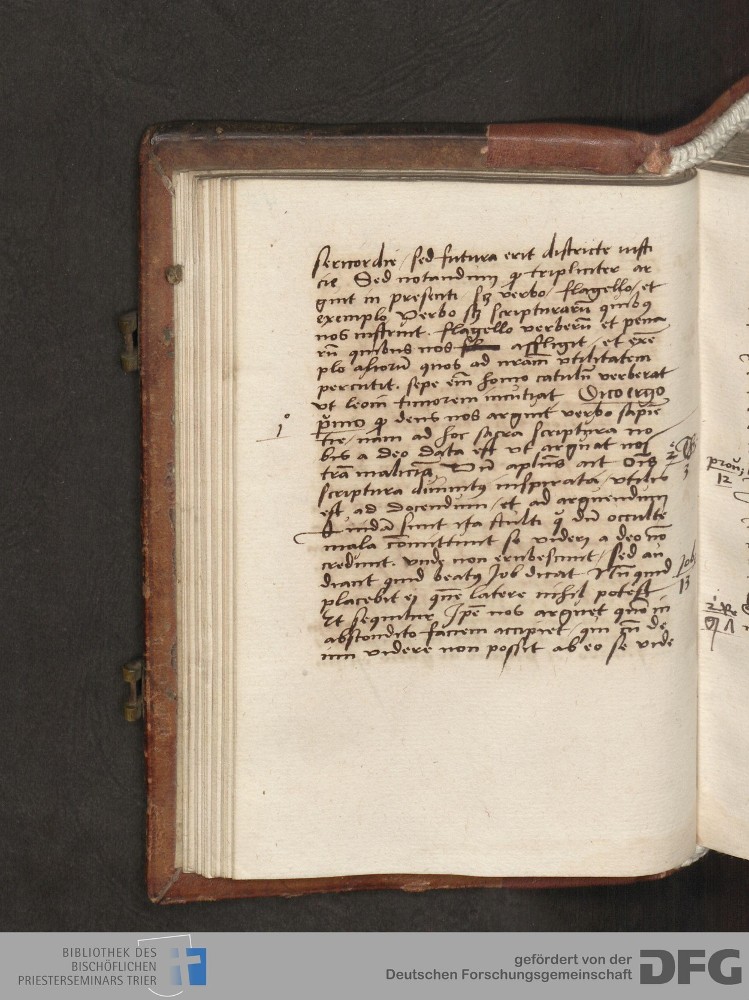 sericordie / sed futura erit districte iusti
cie Sed notandum ꝙ tripliciter ar
guit in presenti / scꝫ verbo / flagello / et
exemplo Verbo scꝫ scripturarū quibꝯ
nos instruit. flagello verberū et pena
rū quibus nos affligit / et exē
plo aliorū quos ad nr̄am vtilitatem
percutit. sepe em̄ homo catulū verberat
vt leoni timorem incutiat Dico ergo
1º
primo ꝙ deus nos arguit verbo sapiē
tie / nam ad hoc sacra scriptura no
bis a deo data est vt arguat nos
tram maliciā Vn̄ aplūs ait Oīs
2ᵉ
3
scriptura diuinitꝯ inspirata / vtilis
est ad docendum / et ad arguendum
Quidā sunt ita stulti ꝙ dū occulte
mala cōmittunt se videri a deo nō
credunt. vnde non erubescunt / sed au
diant quid beatꝯ Job dicat Nūquid
Job
13
placebit ei quē latere nihil potest
Et sequitur Ipē nos arguet quoniā in
abscondito faciem accipiet / qui em̄ de
um videre non possit ab eo se vide
prouꝫ
12
BIBLIOTHEK DES
BISCHÖFLICHEN
PRIESTERSEMINARS TRIER
gefördert von der
Deutschen Forschungsgemeinschaft
DFG